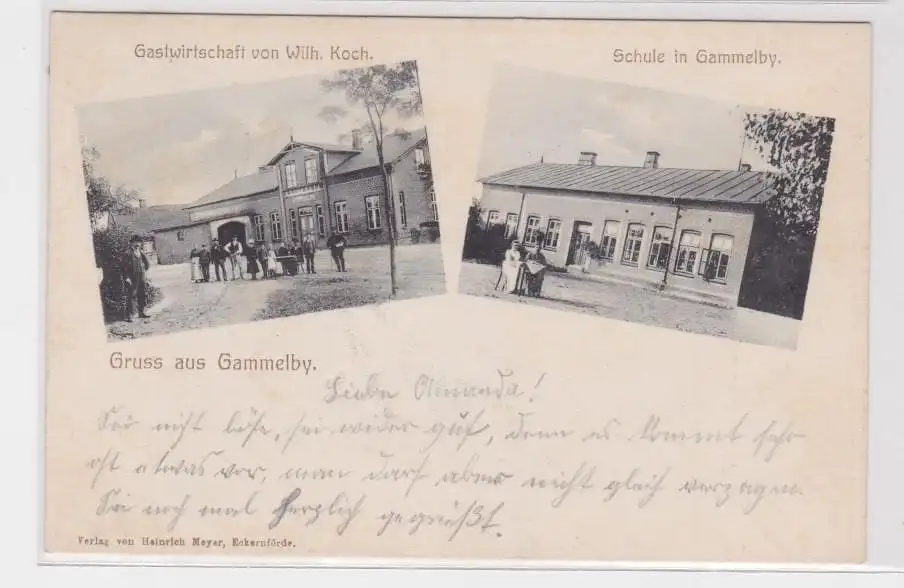 Gastwirtschaft von Wilh. Koch.
Schule in Gammelby.
Gruss aus Gammelby.
Liebe Amanda!
Sei nicht böse, sei wieder gut, denn es kommt sehr
oft etwas vor, man darf aber nicht gleich verzagen.
Sei noch mal herzlich gegrüßt.
Verlag von Heinrich Meyer, Eckernförde.